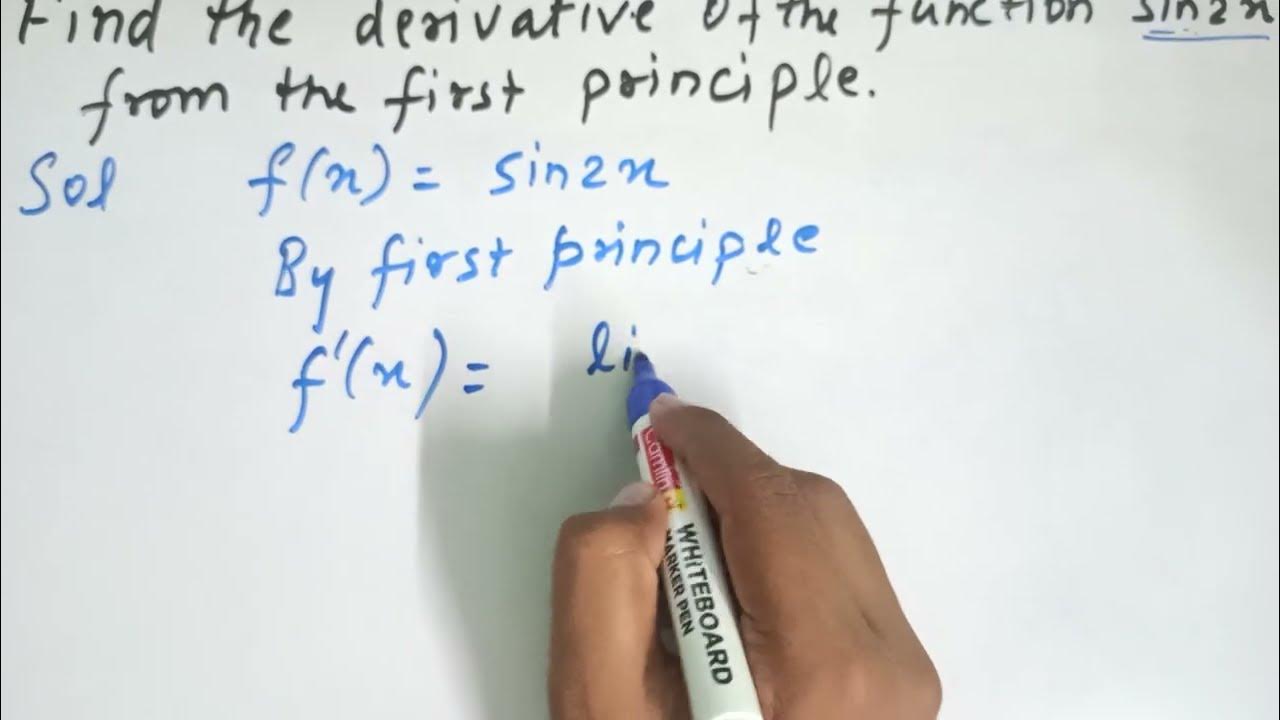 Find the derivative of the function sin2x
from the first principle.
Sol f(x) = sin2x
By first principle
f'(x) = li
Camlin
WHITEBOARD
MARKER PEN